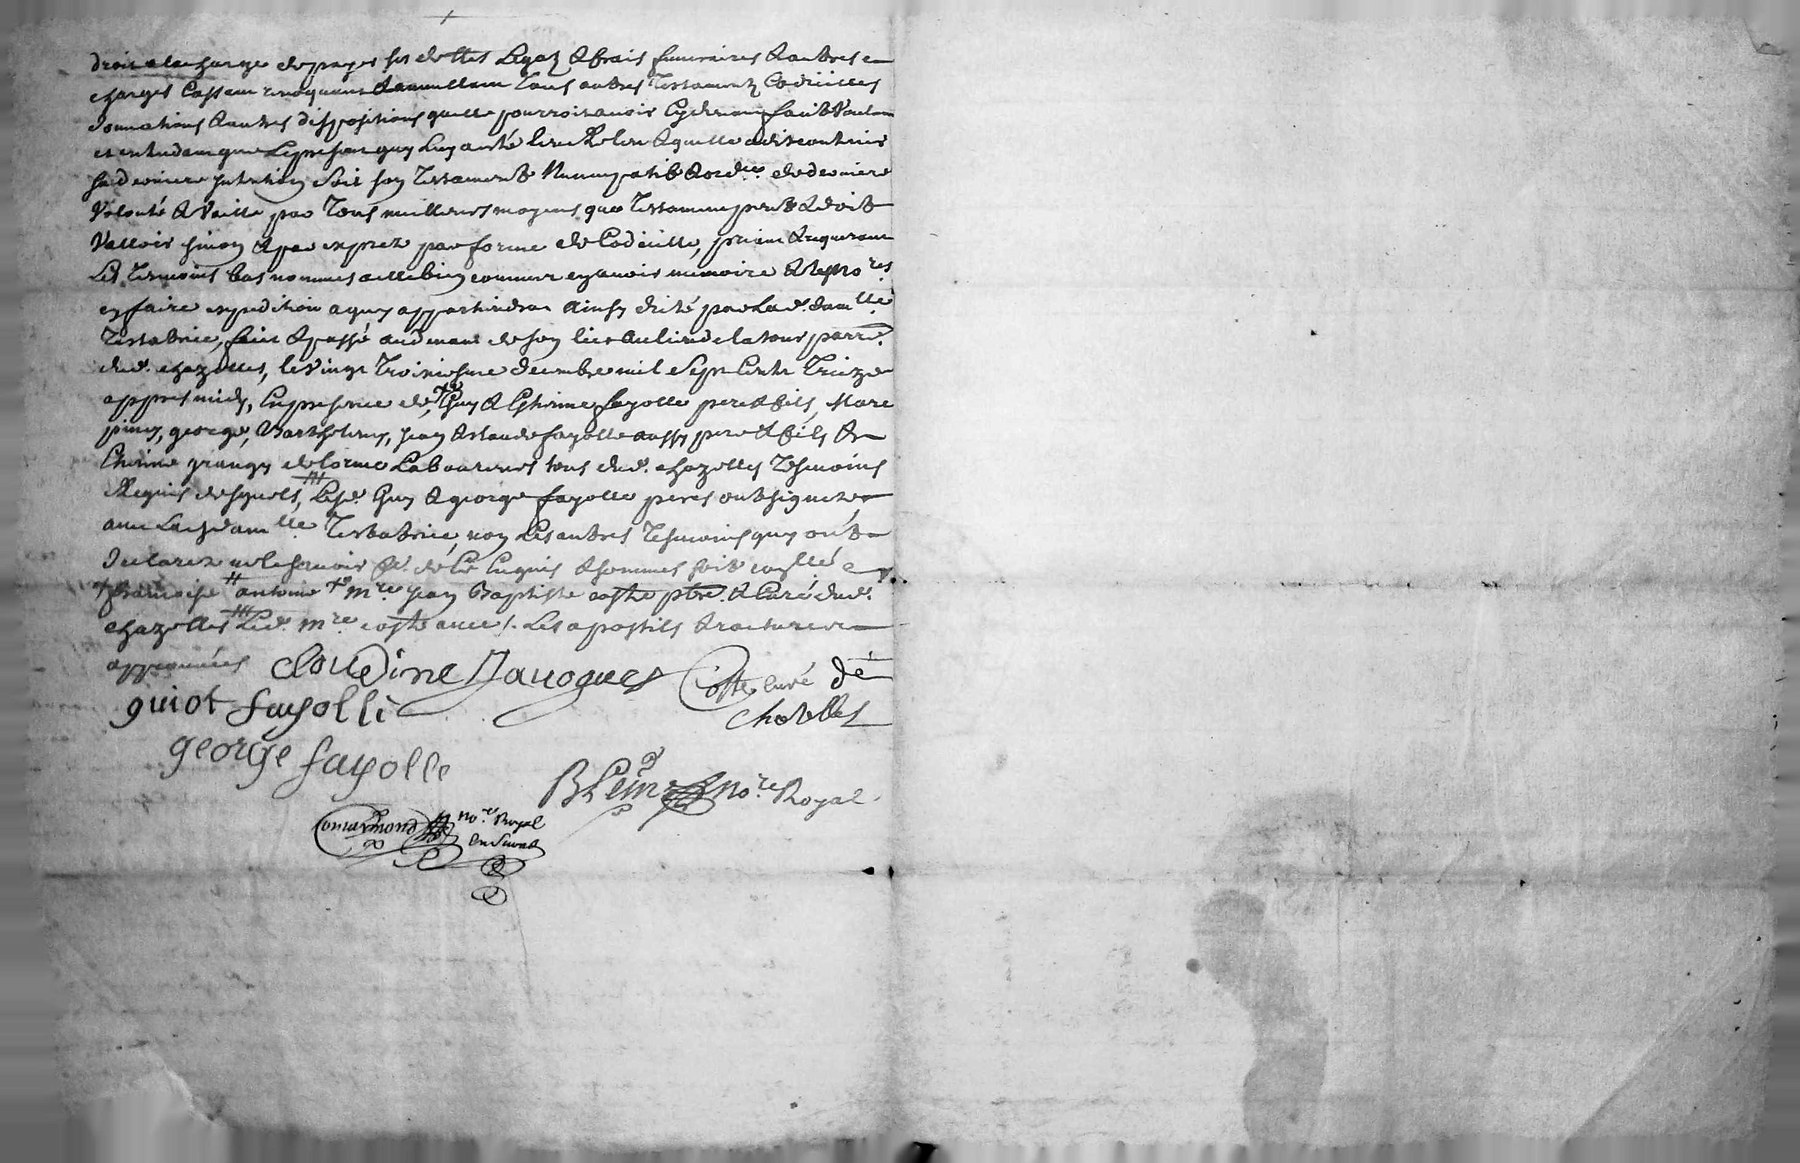 droit a la charge de payer ses debtes Legaz & frais funeraires & autres
charges Cassant revoquant & annullant tous autres Testaments Codicilles
donnations & autres dispositions quelle pourroit avoir Cydevant fait Voulant
et entendant que Le present quy Luy a esté leu & releu & quelle a dit contenir
sa derniere intention soit son Testament Nuncupatif & ord.ce de derniere
Volonté & Vaille par Tous meilleurs moyens que Testament peut & doit
Valloir sinon & par exprez par forme de Codicille, priant & requerant
Les Temoins bas nommes a elle bien connus en avoir memoire & les no.res
en faire expedition a quy appartiendra Ainsy dicté par lad. dam.lle
Testatrice, fait & passé au d'mant de son lict au lieu de la tour parr.e
dud. chazelles, le Vingt Troiziesme decembre mil Sept Cents Treize
appres midy, En presence de Guy & Estienne fayolle pere & fils, Marc
piney, george, Barthelemy, Jean & claude fayolle aussy pere & fils &
Estienne grangy delorme Laboureurs tous dud. chazelles Tesmoins
Requis desquels, Lesd. Guy & george fayolle peres ont signez
avec Lad. dam.lle Testatrice, non Les autres Tesmoins quy ont
declarez ne le scavoir de ce Enquis & sommes soit conllé
françoise antoine m.re Jean Baptiste coste ptre. & Curé dud.
chazelles Led. m.re coste avec /. Les apostils & ratures
approuvées Cloudine Dauogues Coste curé de
guiot fayolle chaselles
george fayolle
no.re Royal
no.re Royal